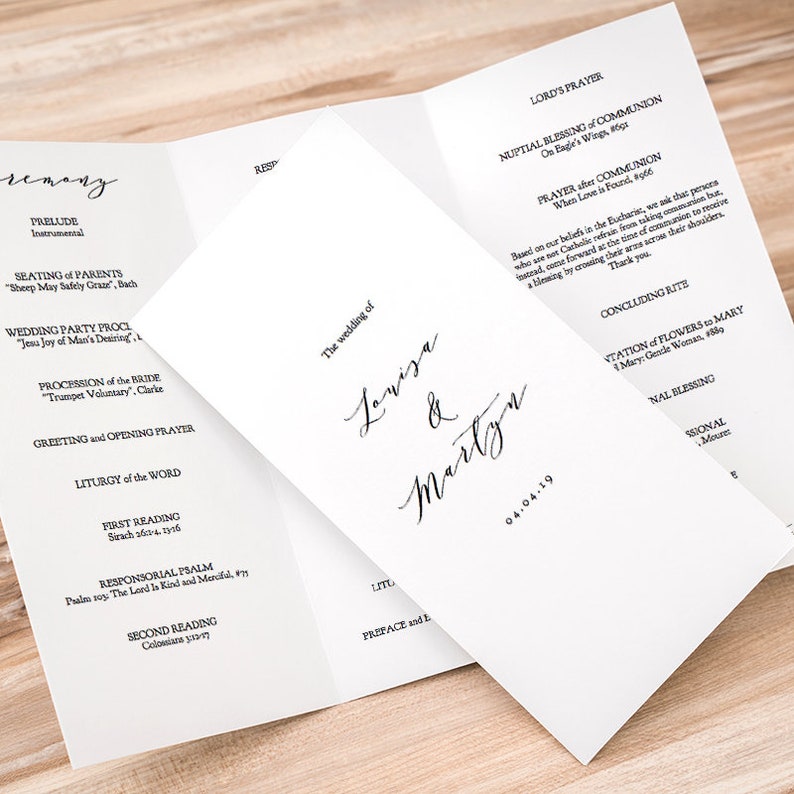 remony
PRELUDE
Instrumental
SEATING of PARENTS
"Sheep May Safely Graze", Bach
WEDDING PARTY PROC
"Jesu Joy of Man's Desiring",
PROCESSION of the BRIDE
"Trumpet Voluntary", Clarke
GREETING and OPENING PRAYER
LITURGY of the WORD
FIRST READING
Sirach 26:1-4, 13-16
RESPONSORIAL PSALM
Psalm 103: The Lord Is Kind and Merciful, #75
SECOND READING
Colossians 3:12-17
RESP
LITU
PREFACE and E
The wedding of
Louisa
&
Martyn
04.04.19
LORD'S PRAYER
NUPTIAL BLESSING of COMMUNION
On Eagle's Wings, #691
PRAYER after COMMUNION
When Love is Found, #966
Based on our beliefs in the Eucharist, we ask that persons
who are not Catholic refrain from taking communion but,
instead, come forward at the time of communion to receive
a blessing by crossing their arms across their shoulders.
Thank you.
CONCLUDING RITE
NTATION of FLOWERS to MARY
l Mary: Gentle Woman, #889
NAL BLESSING
SSIONAL
, Mouret